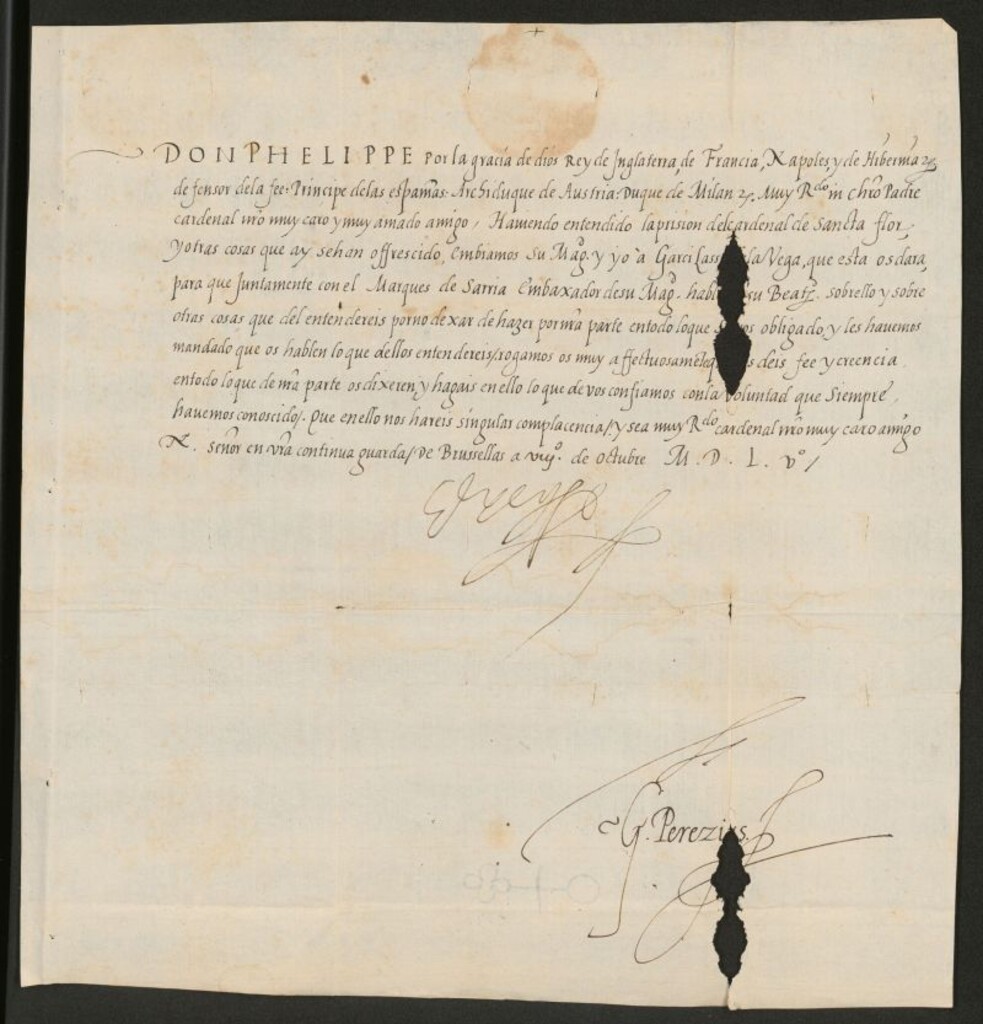 DON PHELIPPE Por la gracia de dios Rey de Inglaterra, de Francia, Napoles, y de Hibernia &c.
defensor de la fee. Principe de las españas. Archiduque de Austria. Duque de Milan &c. Muy R.do in chr̃o Padre
cardenal nr̃o muy caro y muy amado amigo, Haviendo entendido la prision del cardenal de Sancta flor,
y otras cosas que ay se han offrescido, Embiamos Su Mag. y yo à Garci Lass la Vega, que esta os dara,
para que Juntamente con el Marques de Sarria Embaxador de su Mag. habl su Beat. sobrello y sobre
otras cosas que del entendereis por no dexar de hazer por nr̃a parte en todo lo que s os obligado, y les havemos
mandado que os hablen lo que dellos entendereis/ rogamos os muy affectuosamẽte q s deis fee y creencia
en todo lo que de nr̃a parte os dixeren, y hagais en ello lo que de vos confiamos con la voluntad que Siempre,
havemos conoscido/. Que en ello nos hareis singular complacencia/. y sea muy R.do cardenal nr̃o muy caro amigo
N. Señor en vr̃a continua guarda/ De Brussellas a viijº. de Octubre M. D. L. vº/
G. Perezius.